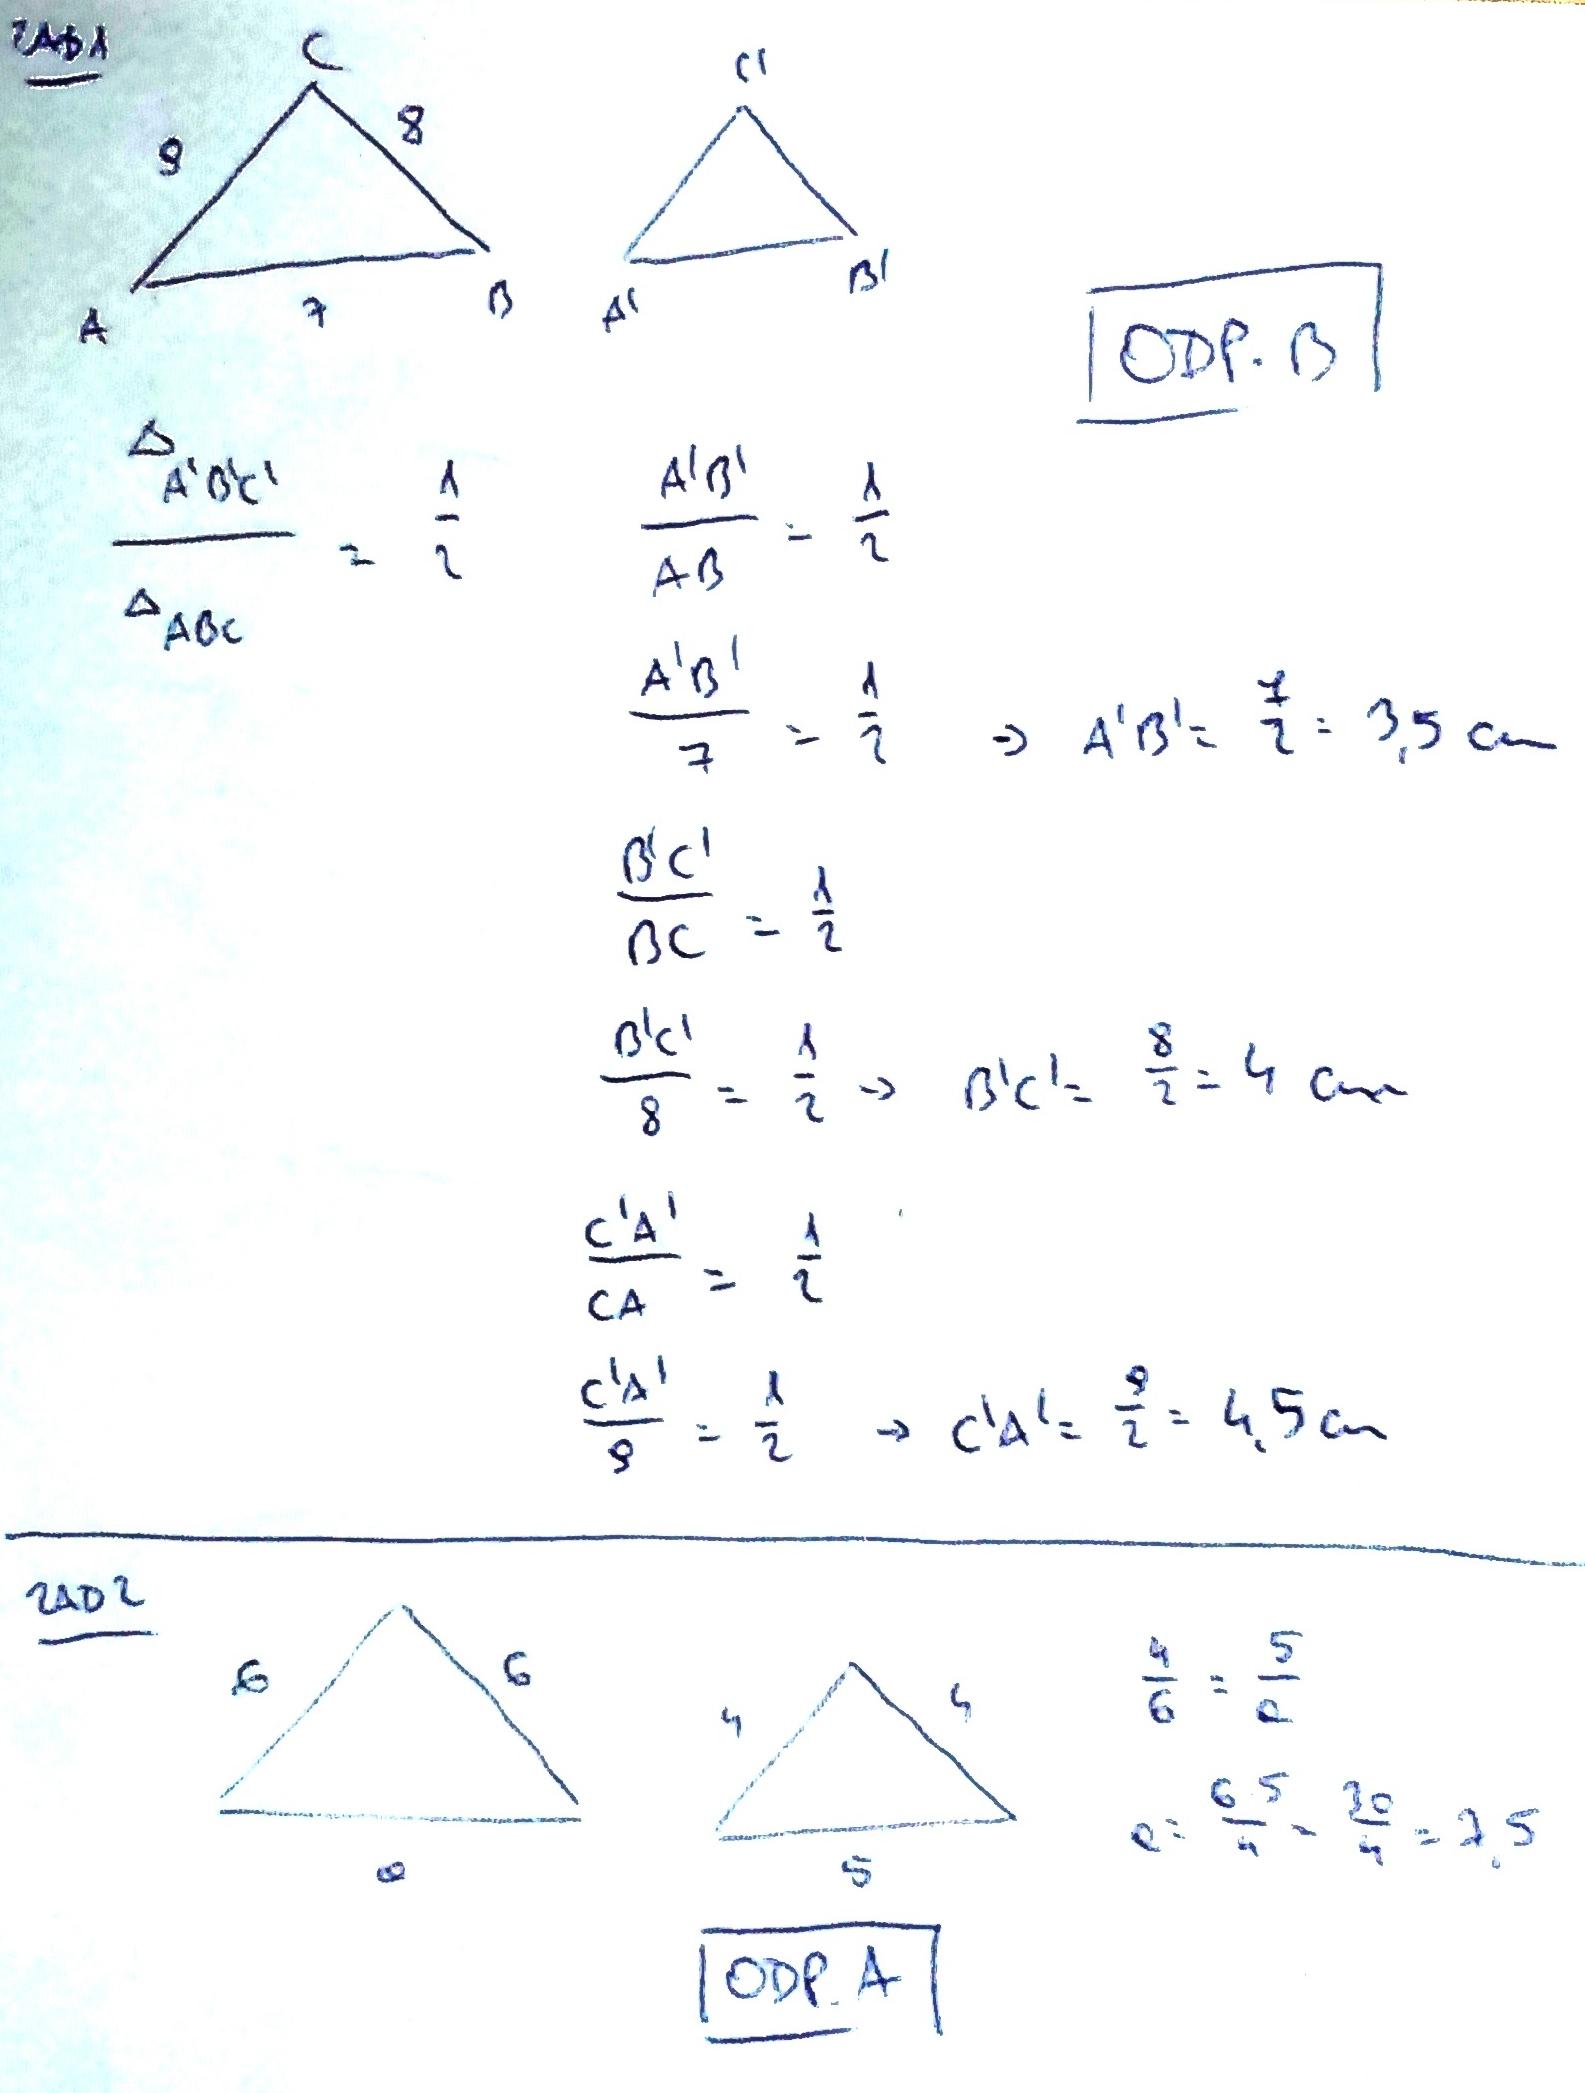 ZAD1
C
C'
9
8
A
7
B
A'
B'
ODP. B
Δ A'B'C' / Δ ABC = 1/2
A'B' / AB = 1/2
A'B' / 7 = 1/2 → A'B' = 7/2 = 3,5 cm
B'C' / BC = 1/2
B'C' / 8 = 1/2 → B'C' = 8/2 = 4 cm
C'A' / CA = 1/2
C'A' / 9 = 1/2 → C'A' = 9/2 = 4,5 cm
ZAD2
6
6
a
4
4
5
4/6 = 5/a
a = 6·5/4 = 30/4 = 7,5
ODP. A